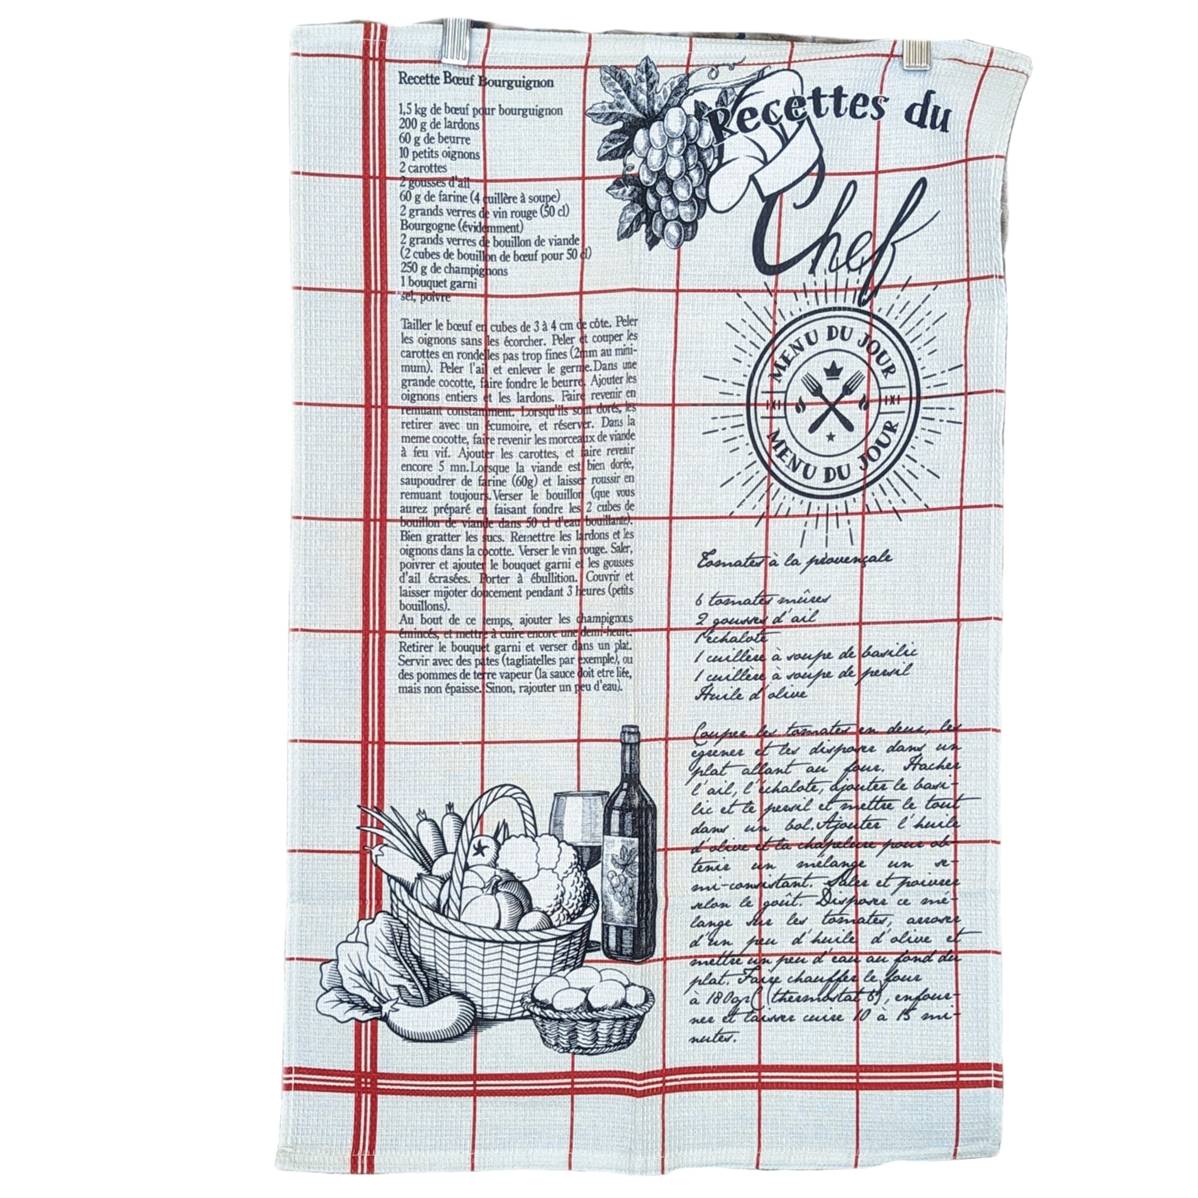 Recette Bœuf Bourguignon
1,5 kg de bœuf pour bourguignon
200 g de lardons
60 g de beurre
10 petits oignons
2 carottes
2 gousses d'ail
60 g de farine (4 cuillère à soupe)
2 grands verres de vin rouge (50 cl)
Bourgogne (évidemment)
2 grands verres de bouillon de viande
(2 cubes de bouillon de bœuf pour 50 cl)
250 g de champignons
1 bouquet garni
sel, poivre
Tailler le bœuf en cubes de 3 à 4 cm de côte. Peler
les oignons sans les écorcher. Peler et couper les
carottes en rondelles pas trop fines (2mm au mini-
mum). Peler l'ail et enlever le germe.Dans une
grande cocotte, faire fondre le beurre. Ajouter les
oignons entiers et les lardons. Faire revenir en
remuant constamment. Lorsqu'ils sont dorés, les
retirer avec un écumoire, et réserver. Dans la
meme cocotte, faire revenir les morceaux de viande
à feu vif. Ajouter les carottes, et faire revenir
encore 5 mn.Lorsque la viande est bien dorée,
saupoudrer de farine (60g) et laisser roussir en
remuant toujours.Verser le bouillon (que vous
aurez préparé en faisant fondre les 2 cubes de
bouillon de viande dans 50 cl d'eau bouillante).
Bien gratter les sucs. Remettre les lardons et les
oignons dans la cocotte. Verser le vin rouge. Saler,
poivrer et ajouter le bouquet garni et les gousses
d'ail écrasées. Porter à ébullition. Couvrir et
laisser mijoter doucement pendant 3 heures (petits
bouillons).
Au bout de ce temps, ajouter les champignons
émincés, et mettre à cuire encore une demi-heure.
Retirer le bouquet garni et verser dans un plat.
Servir avec des pâtes (tagliatelles par exemple), ou
des pommes de terre vapeur (la sauce doit etre liée,
mais non épaisse. Sinon, rajouter un peu d'eau).
Recettes du
Chef
MENU DU JOUR
MENU DU JOUR
Tomates à la provençale
6 tomates mûres
2 gousses d'ail
1 échalote
1 cuillère à soupe de basilic
1 cuillère à soupe de persil
Huile d'olive
Couper les tomates en deux, les
égrener et les disposer dans un
plat allant au four. Hacher
l'ail, l'échalote, ajouter le basi-
lic et le persil et mettre le tout
dans un bol.Ajouter l'huile
d'olive et la chapelure pour ob-
tenir un mélange un se-
mi-consistant. Saler et poivrer
selon le goût. Disposer ce mé-
lange sur les tomates, arroser
d'un peu d'huile d'olive et
mettre un peu d'eau au fond du
plat. Faire chauffer le four
à 180gr.C (thermostat 6), enfour-
ner et laisser cuire 10 à 15 mi-
nutes.